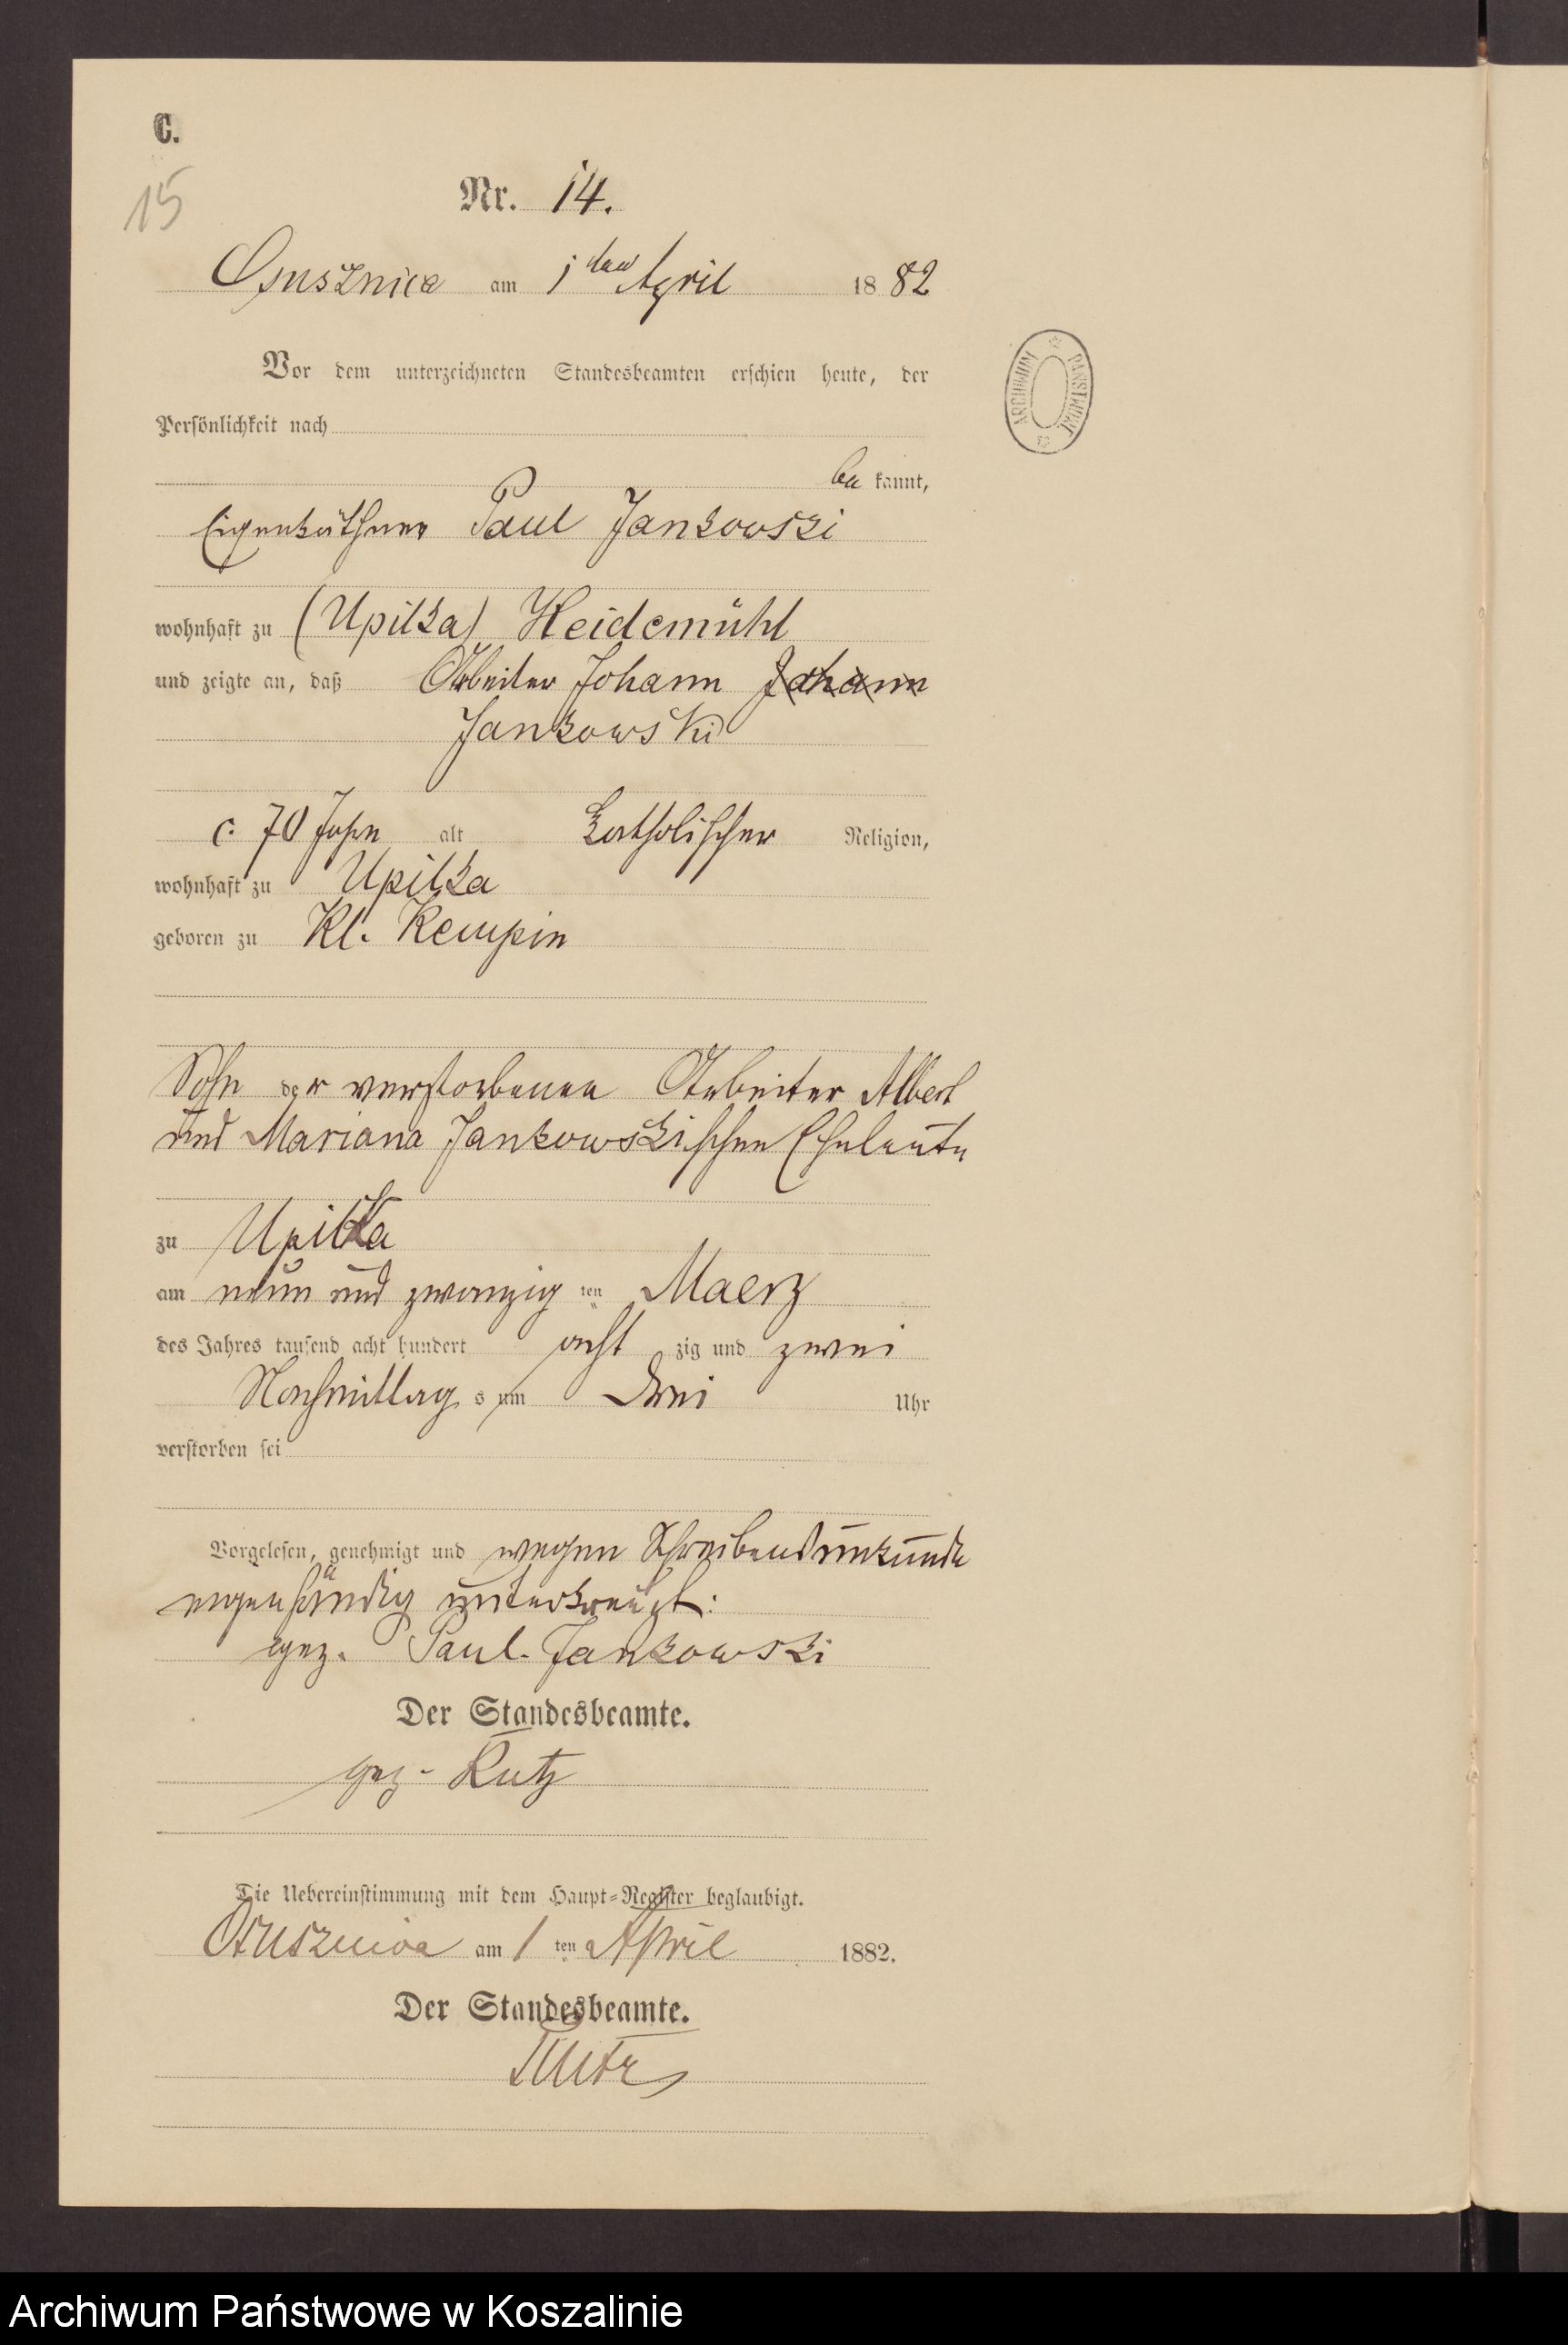 C.
15
Nr. 14.
Ossusznica am 1ten April 1882
ARCHIWUM PAŃSTWOWE
Vor dem unterzeichneten Standesbeamten erschien heute, der
Persönlichkeit nach
bekannt,
Eigenkäthner Paul Jankowski
wohnhaft zu (Upilka) Heidemühl
und zeigte an, daß Arbeiter Johann Johann
Jankowski
c. 70 Jahre alt katholischer Religion,
wohnhaft zu Upilka
geboren zu Kl. Kempin
Sohn der verstorbenen Arbeiter Albert
und Mariana Jankowskischen Eheleute
zu Upilka
am neun und zwanzig ten Maerz
des Jahres tausend acht hundert acht zig und zwei
Nachmittag s um drei Uhr
verstorben sei
Vorgelesen, genehmigt und wegen Schreibensunkunde
eigenhändig unterkreuzt:
gez. Paul Jankowski
Der Standesbeamte.
gez. Rutz
Die Uebereinstimmung mit dem Haupt-Register beglaubigt.
Ossusznica am 1 ten April 1882.
Der Standesbeamte.
Rutz
Archiwum Państwowe w Koszalinie